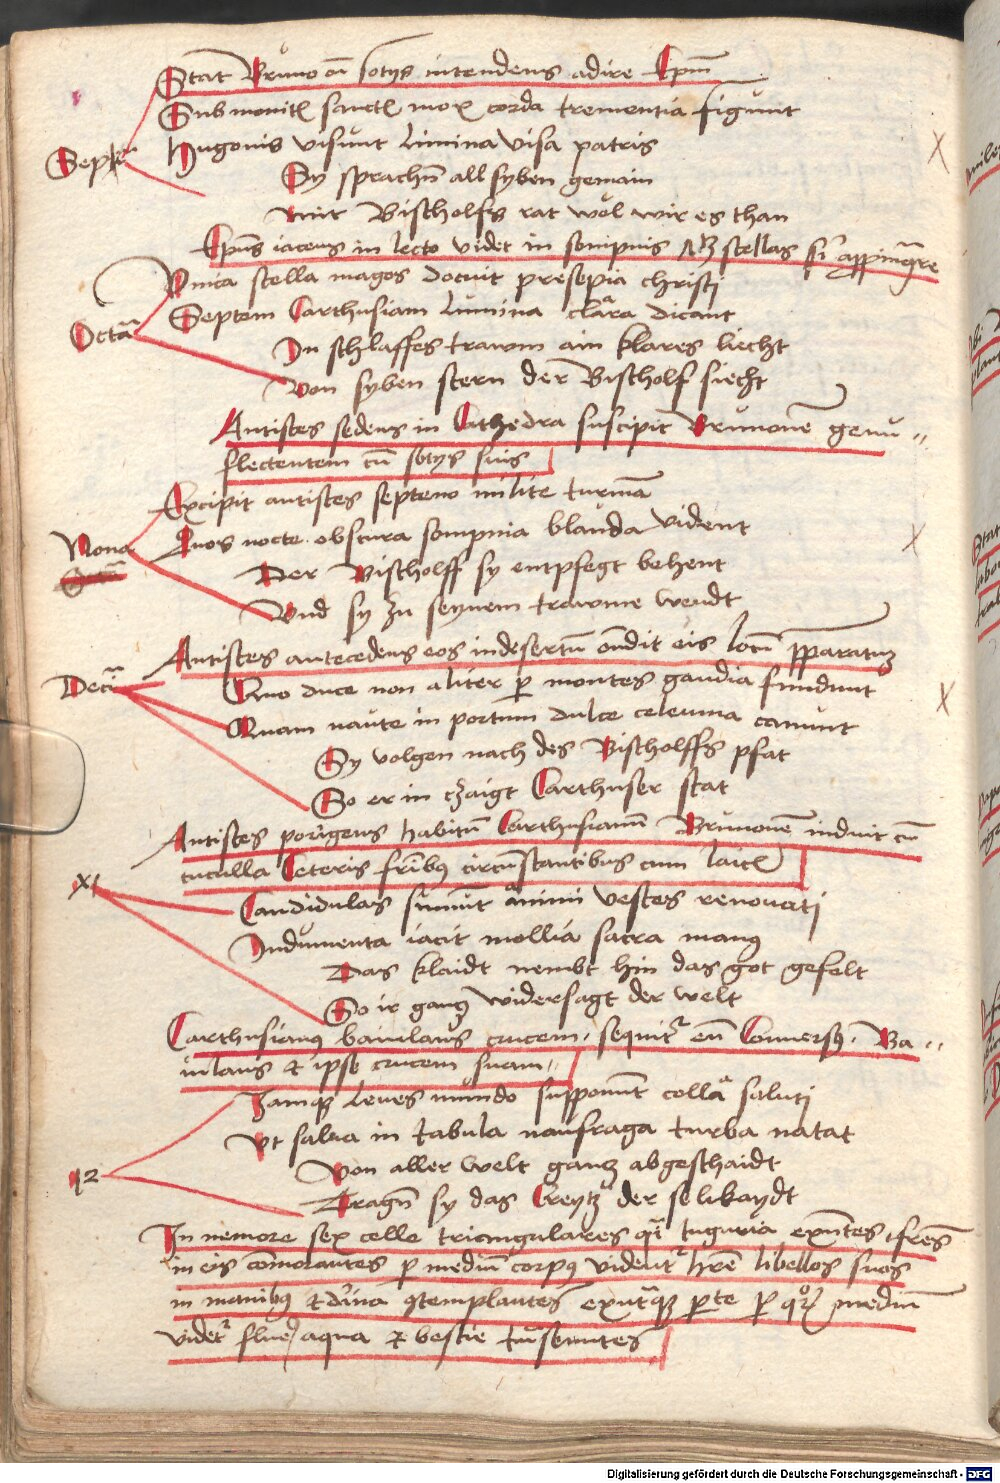 Stat Bruno cū sotijs intendens adire Epm̄
Submoniti sancti mox corda trementia figunt
Septiᵃ
Hugonis visunt limina visa patris
Sy sprachn̄ all syben gemain
Mit Bischolfs rat wöl wir es than
Ep̄us iacens in lecto videt in sompnis stellas sī appin̄qre
Octāᵃ
Unica stella magos docuit presepia christi
Septem Carthusiam lumina clara dicant
In schlaffes trawm ain klares liecht
Von syben stern der Bischolf siecht
Antistes sedens in Cathedra suscipit Brunonē genu //
flectentem cū sotijs suis
Excipit antistes septeno milite turmā
Nona
Quos nocte obscura sompnia blanda vident
Der Bischolff sy entpfegt behent
Und sy zu seynem trawme wendt
Antistes antecedens eos in desertū ondit eis locū pparatum
Deciᵃ
Quo duce non aliter p montes gaudia fundunt
Quam naute in portum dulce celeuma canunt
Sy volgen nach des Bischolffs pfat
So er in czaigt Carthuser stat
Antistes porigens habitū Carthusianū Brunonē induit cū
cuculla Ceteris frībus circūstantibus cum laicis
XI
Candidulas sumunt animi vestes renovati
Indumenta iacit mollia sacra manus
Das klaidt nembt hin das got gefelt
So ir gantz widersagt der welt
Carthusianus baiulans crucem, sequitʳ eū Conversus. Ba //
iulans et ipse crucem suam //
Iamque leves mundo supponunt colla saluti
Ut salva in tabula naufraga turba natat
12
Von aller welt gantz abgeschaidt
Tragn̄ sy das Creytz der selikaydt
In nemore sex celle triangulares qi tuguria exn̄tes, frēs
in eis cōmorantes p mediū corpus videntʳ hrē libellos suos
in manibus et divina contemplantes ex utraque pte p quoȝ mediū
videtʳ fluere aqua et bestie trāseuntes
Digitalisierung gefördert durch die Deutsche Forschungsgemeinschaft - DFG